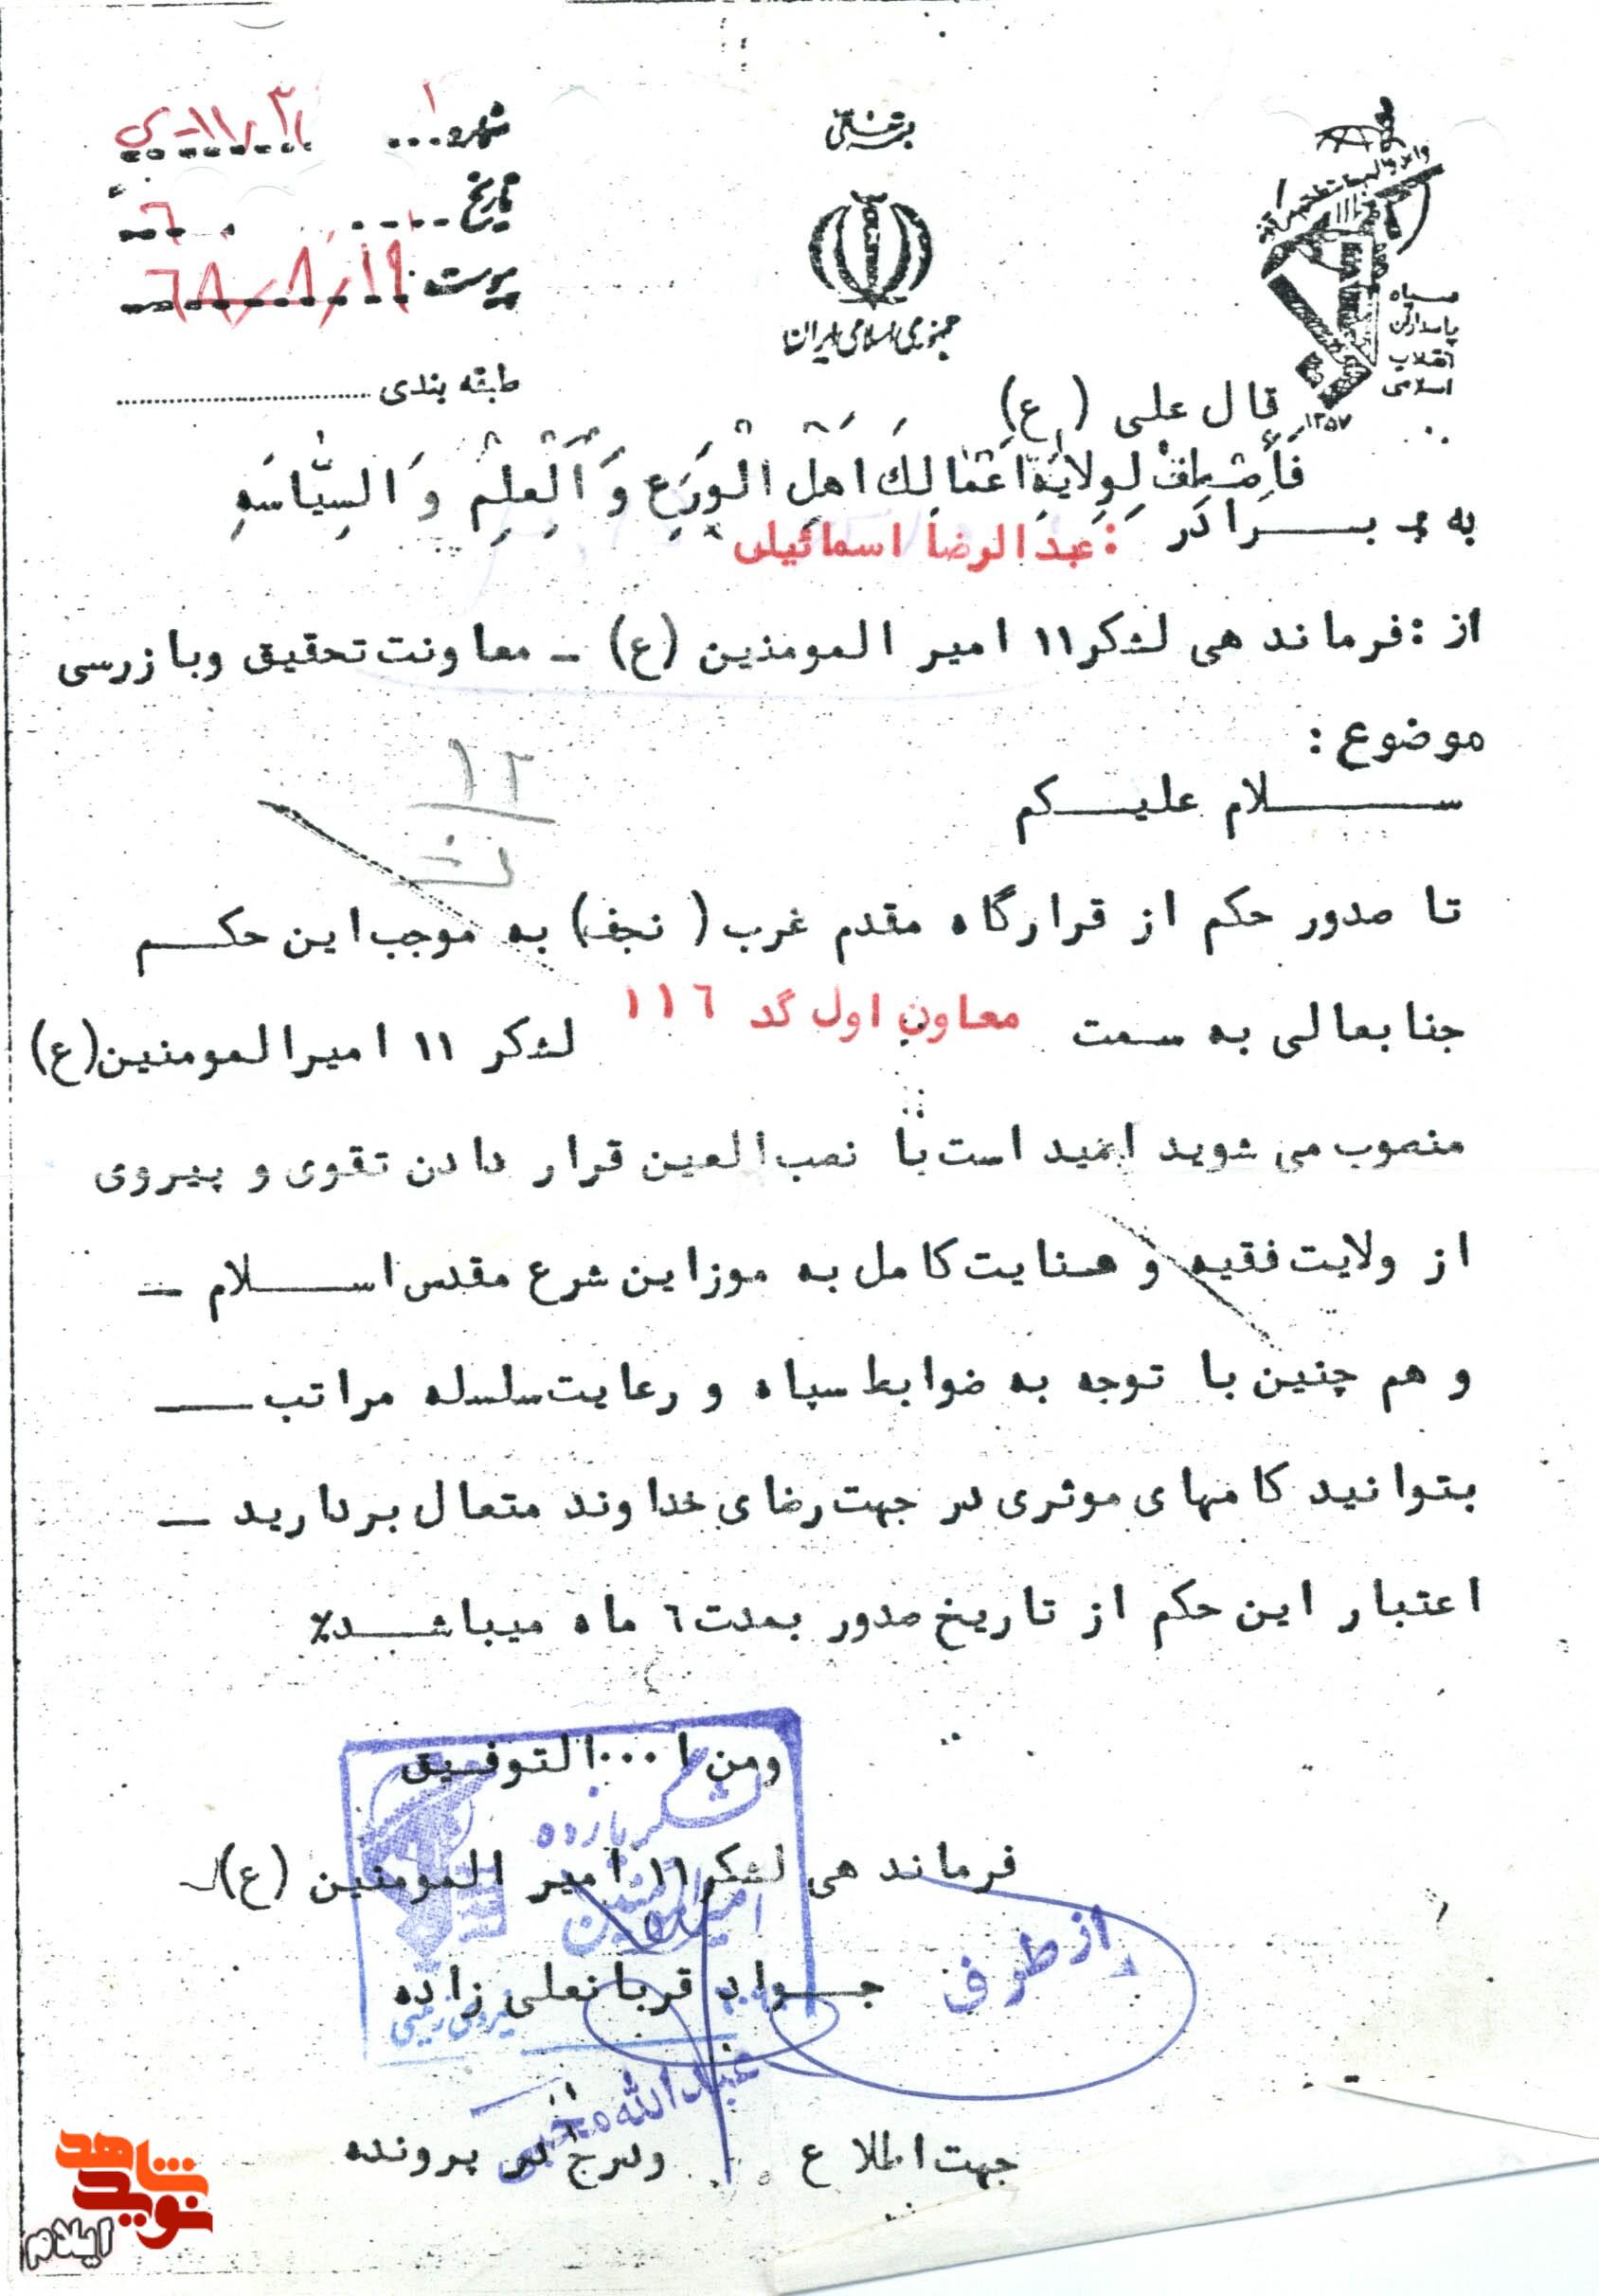 برتعالی
شماره ...
تاریخ
پیوست
۶۸/۸/۱۹
طبقه بندی
جمهوری اسلامی ایران
سپاه
پاسداران
انقلاب
اسلامی
۱۳۵۷
قال علی (ع)
فَأَصْطَفْ لِوِلایَةِ اَعْمَالِكَ اَهْلَ الْوَرَعِ وَ الْعِلْمِ وَ السِّیَاسَهِ
به بـــرادر : عبدالرضا اسمائیلی
از : فرماندهی لشکر ۱۱ امیر المومنین (ع) ـ معاونت تحقیق وبازرسی
موضوع :
ســـلام علیـــکم
۱۲
تا صدور حکم از قرارگاه مقدم غرب ( نجف) به موجب این حکـــم
جنابعالی به سمت معاون اول گد ۱۱۶ لشکر ۱۱ امیرالمومنین (ع)
منصوب می شوید امید است با نصب العین قرار دادن تقوی و پیروی
از ولایت فقیه و عنایت کامل به موزاین شرع مقدس اســـلام ـ
و هم چنین با توجه به ضوابط سپاه و رعایت سلسله مراتب ـــ
بتوانید کامهای موثری در جهت رضای خداوند متعال بردارید ـ
اعتبار این حکم از تاریخ صدور بمدت ۶ ماه میباشـــد٪
ومن ا...التوفیق
لشکر یازده
امیرالمومنین
نیروی زمینی
فرماندهی لشکر ۱۱ امیر المومنین (ع)
از طرف
جـــواد قربانعلی زاده
عبدالله
جهت اطلاع
ودرج در پرونده
نوید شاهد
ایلام